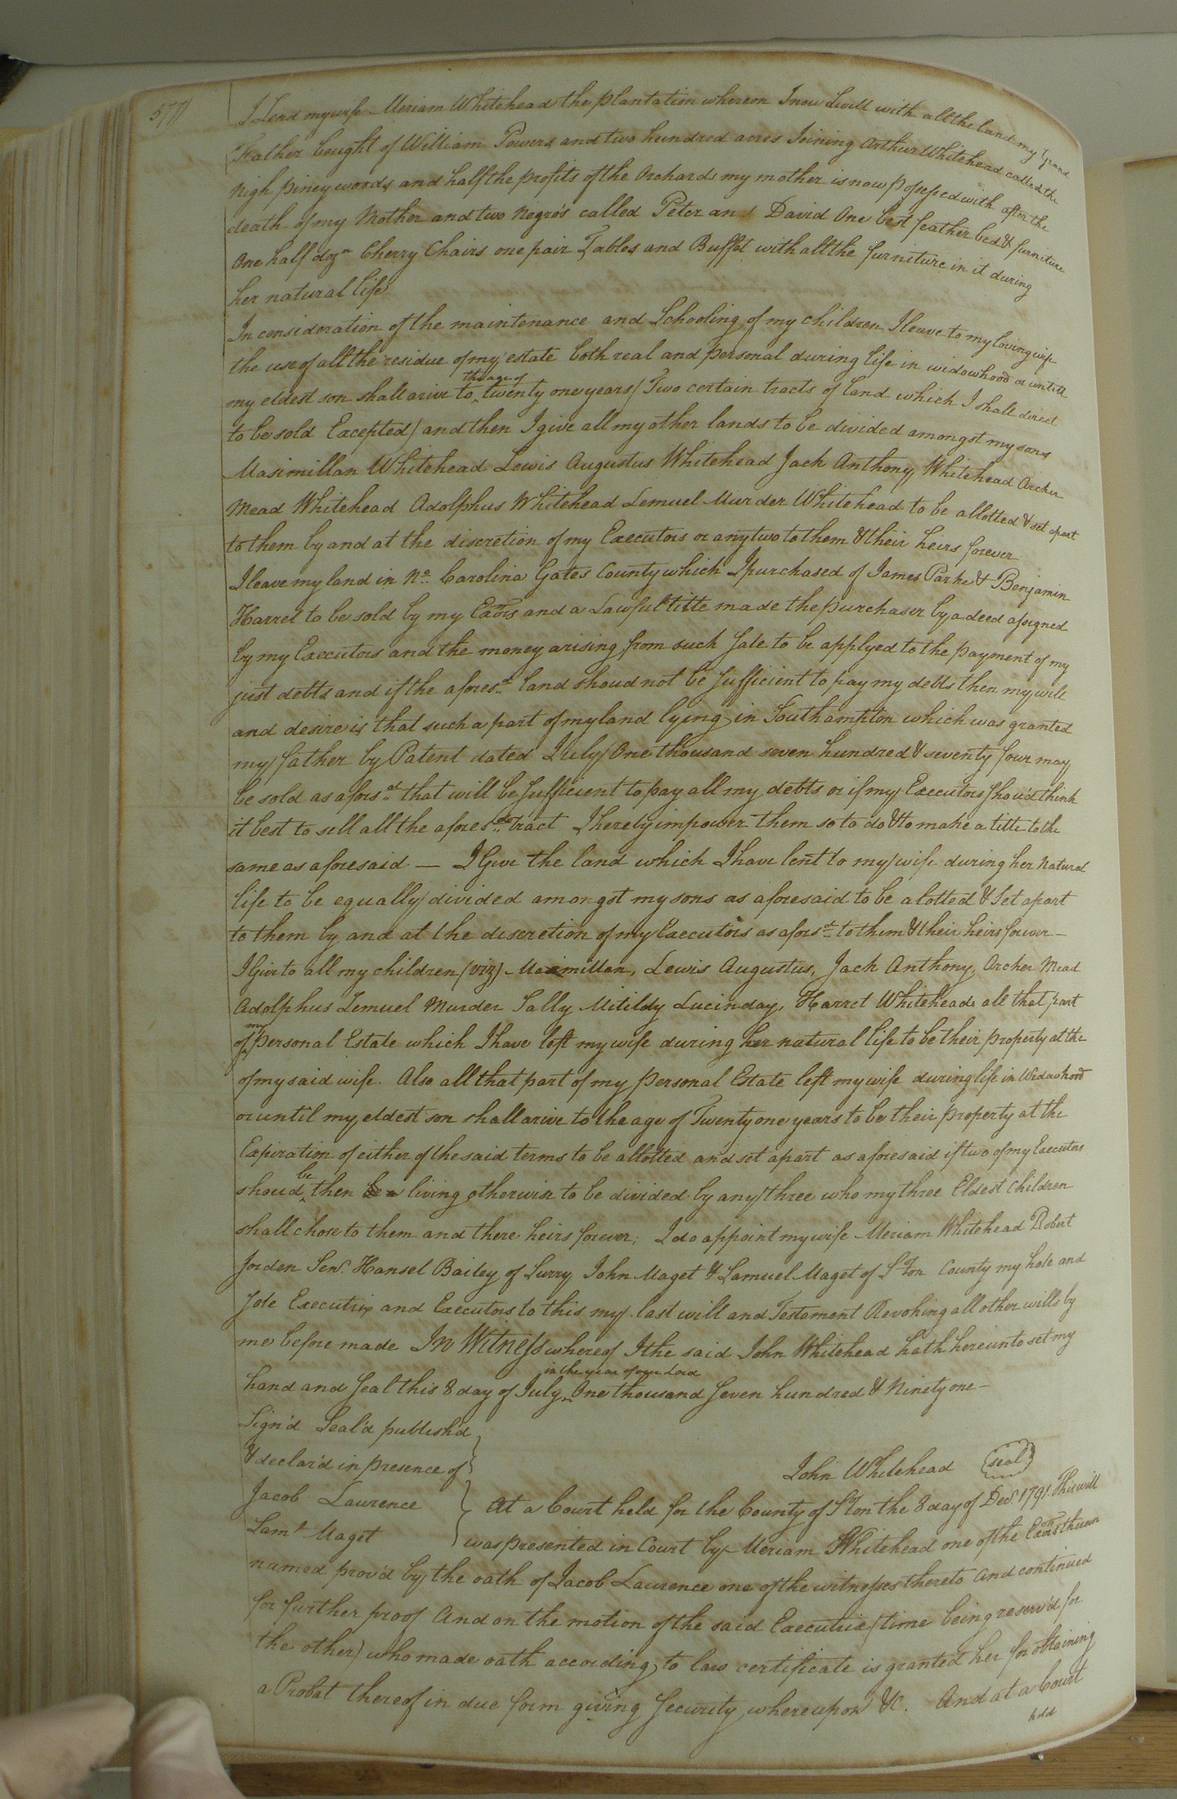 577
I Lend my wife Meriam Whitehead the plantation whereon I now Live with all the land my Grand
Father bought of William Powers and two hundred acres Joining Arthur Whitehead called the
high piney woods and half the profits of the Orchards my mother is now possessed with after the
death of my Mother and two Negro's called Peter and David One best feather bed & furniture
One half dozn Cherry Chairs one pair Tables and Buffet with all the furniture in it during
her natural life
In consideration of the maintenance and Schooling of my children I leave to my loving wife
the use of all the residue of my estate both real and personal during life in widowhood or untill
my eldest son shall arive to the age of twenty one years (Two certain tracts of land which I shall direct
to be sold Excepted) and then I give all my other lands to be divided amongst my sons
Maximillan Whitehead Lewis Augustus Whitehead Jack Anthony Whitehead Archer
Mead Whitehead Adolphus Whitehead Lemuel Murder Whitehead to be allotted & set apart
to them by and at the discretion of my Executors or any two to them & their heirs forever
I leave my land in No. Carolina Gates County which I purchased of James Parke & Benjamin
Harrel to be sold by my Exors and a Lawful title made the purchaser by a deed assigned
by my Executors and the money arising from such sale to be applyed to the payment of my
just debts and if the aforesd land shoud not be sufficient to pay my debts then my will
and desire is that such a part of my land lying in Southampton which was granted
my father by Patent dated July One thousand seven hundred & seventy four may
be sold as aforsd that will be sufficient to pay all my debts or if my Executors shou'd think
it best to sell all the aforesd tract I hereby impower them so to do & to make a title to the
same as aforesaid — I Give the land which I have lent to my wife during her Natural
life to be equally divided amongst my sons as aforesaid to be alotted & Set apart
to them by and at the discretion of my Executors as aforsd to them & their heirs forever —
I Give to all my children (viz) Maximillan, Lewis Augustus, Jack Anthony, Archer Mead
Adolphus Lemuel Murder Sally Mitildy Lucinday, Harret Whiteheads all that part
of my personal Estate which I have left my wife during her natural life to be their property at the
of my said wife. Also all that part of my personal Estate left my wife during life in Widowhood
or until my eldest son shall arive to the age of Twenty one years to be their property at the
Expiration of either of the said terms to be allotted and set apart as aforesaid if two of my Executors
shoud be then living otherwise to be divided by any three who my three Eldest Children
shall chose to them and there heirs forever; I do appoint my wife Meriam Whitehead Robert
Jorden Senr. Hansel Bailey of Surry John Maget & Samuel Maget of S.ton County my hole and
Sole Executrix and Executors to this my last will and Testament Revoking all other wills by
me before made In Witness whereof I the said John Whitehead hath hereunto set my
hand and Seal this 8 day of July in the year of our Lord One thousand Seven hundred & Ninety one —
Sign'd Seal'd publish'd
& declar'd in presence of
John Whitehead seal
Jacob Laurence
Saml Maget
At a Court held for the County of S.ton the 8 day of Decr 1791 This will
was presented in Court by Meriam Whitehead one of the Exors therein
named prov'd by the oath of Jacob Laurence one of the witnesses thereto and continued
for further proof And on the motion of the said Executrix (time being reserv'd for
the other) who made oath according to law certificate is granted her for obtaining
a Probat thereof in due form giving Security whereupon &c. And at a Court
held